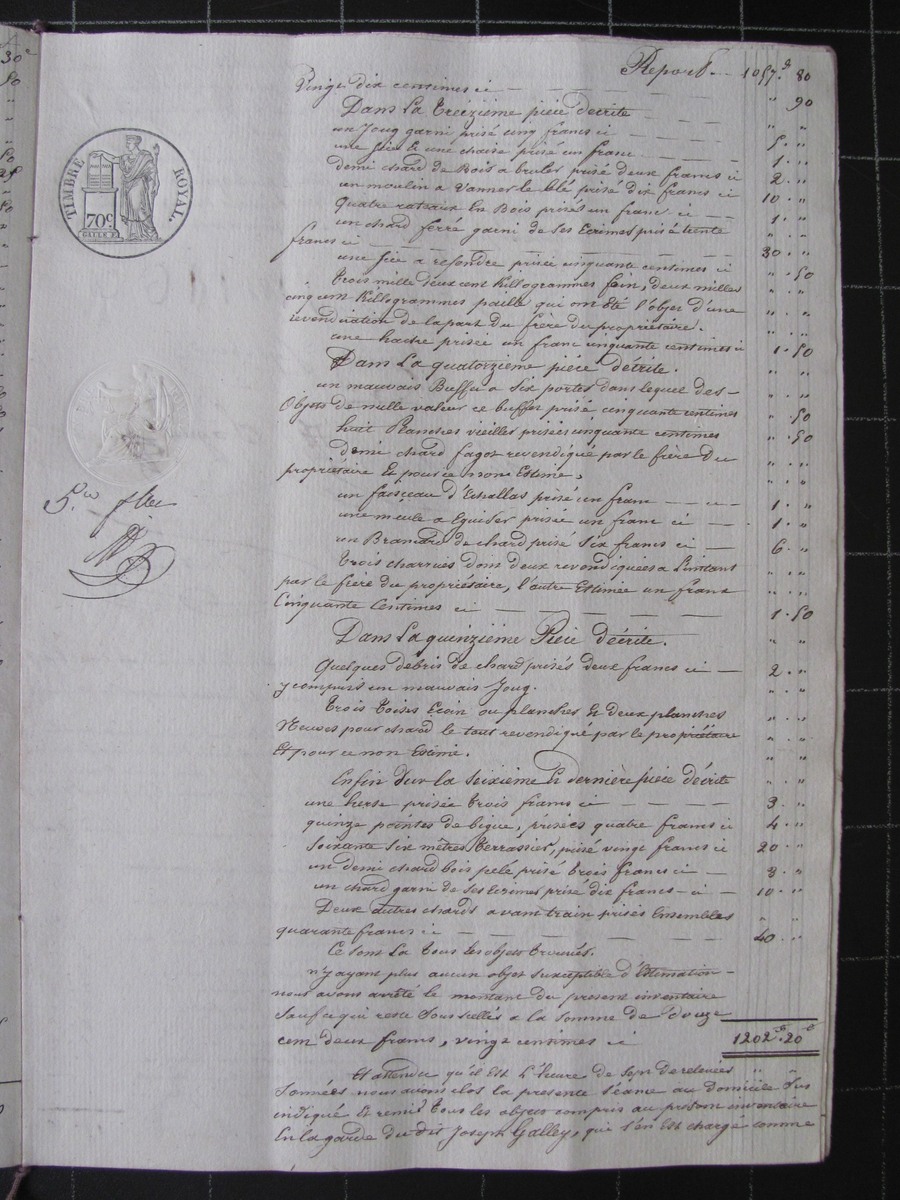 Report — 1057.f 80
Vingt dix centimes ci — — — " 90
Dans La treizième pièce décrite " "
un Joug garni prisé cinq francs ci — 5. "
une scie et une chaise prisé un franc — — 1. "
demi chard de Bois a bruler prisé deux francs ci 2. "
un moulin a Vanner le blé prisé dix francs ci 10. "
quatre rateaux en Bois prisés un franc ci — — 1. "
un chard ferré garni de ses Ecrimes prisé trente " "
francs ci — — — 30. "
une scie a refendre prisée cinquante centimes ci " 50
trois mille deux cent Killogrammes foin, deux milles " "
cinq cent Killogrammes paille qui ont été l'objet d'une " "
revendication de la part du frère du propriétaire. " "
une hache prisée un franc cinquante centimes ci 1. 50
Dans La quatorzième pièce décrite. " "
un mauvais Buffet a six portes dans lequel des- " "
Objets de nulle valeur ce buffet prisé cinquante centimes " 50
huit Planches vieilles prisées cinquante centimes " 50
demi chard fagot revendiqué par le frère du " "
propriétaire et pour ce non Estimé. " "
un faisceau d'Echallas prisé un franc — — ci — 1. "
une meule a Eguiser prisée un franc ci — 1. "
un Brancard de chard prisé Six francs ci — 6. "
trois charrues dont deux revendiquées a L'instant " "
par le frère du propriétaire, l'autre Estimée un franc " "
Cinquante Centimes ci — — — 1. 50
Dans La quinzième Pièce décrite. " "
Quelques débris de chard prisés deux francs ci — 2. "
y compris un mauvais Joug. " "
trois toises Ecoin ou planches et deux planches " "
Neuves pour chard le tout revendiqué par le propriétaire " "
Et pour ce non Estimé. " "
Enfin Sur la Seizième et dernière pièce décrite " "
une herse prisée trois francs ci — — — 3. "
quinze pointes de bigue, prisées quatre francs ci 4. "
Soixante six mètres terrassier, prisé vingt francs ci 20. "
un demi chard bois pelé prisé trois francs ci — 3. "
un chard garni de ses Ecrimes prisé dix francs — ci — 10. "
Deux autres chards avant train prisés Ensembles " "
quarante francs ci — — — 40. "
Ce sont La tous les objets trouvés.
n'y ayant plus aucun objet susceptible d'Estimation —
nous avons arrêté le montant du present inventaire
Sauf ce qui reste Sous scellés a la Somme de douze
cent deux francs, vingt centimes ci 1202.f 20c
Et attendu qu'il Est L'heure de Sept de relevées
Sonnées nous avons clos la presente Séance au Domicile Sus
indiqué Et remis tous les objets compris au présent inventaire
En la garde du dit Joseph Galley, qui s'en Est chargé comme
TIMBRE ROYAL.
70c.
5.